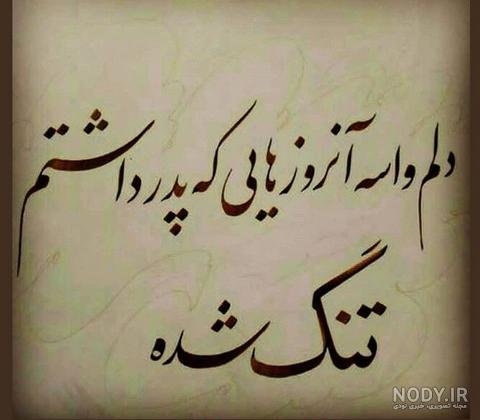 دلم واسه آنروزهایی که پدر داشتم
تنگ شده
NODY.IR
مجله تصویری، خبری نودی